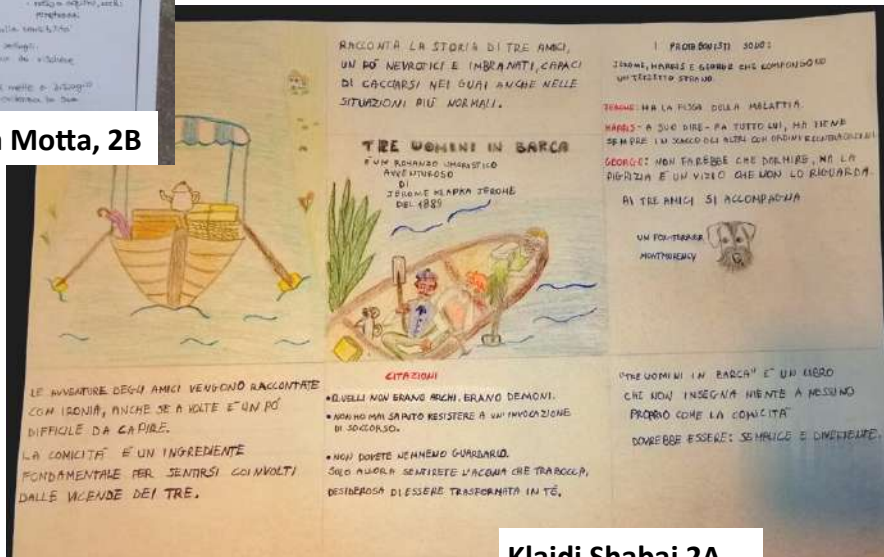 alla
dettagli.
Motta, 2B
RACCONTA LA STORIA DI TRE AMICI,
UN PO' NEVROTICI E IMBRANATI, CAPACI
DI CACCIARSI NEI GUAI ANCHE NELLE
SITUAZIONI PIÙ NORMALI.
TRE UOMINI IN BARCA
È UN ROMANZO UMORISTICO
AVVENTUROSO
DI
JEROME KLAPKA JEROME
DEL 1889
I PROTAGONISTI SONO:
JEROME, HARRIS E GEORGE CHE COMPONGONO
UN TERZETTO STRANO.
JEROME: HA LA FISSA DELLA MALATTIA.
HARRIS - A SUO DIRE - FA TUTTO LUI, MA TIENE
SEMPRE IN SCACCO GLI ALTRI CON ORDINI E CONTRAORDINI.
GEORGE: NON FAREBBE CHE DORMIRE, MA LA
PIGRIZIA È UN VIZIO CHE NON LO RIGUARDA.
AI TRE AMICI SI ACCOMPAGNA
UN FOX-TERRIER
MONTMORENCY
LE AVVENTURE DEGLI AMICI VENGONO RACCONTATE
CON IRONIA, ANCHE SE A VOLTE E' UN PO'
DIFFICILE DA CAPIRE.
LA COMICITA' E' UN INGREDIENTE
FONDAMENTALE PER SENTIRSI COINVOLTI
DALLE VICENDE DEI TRE.
CITAZIONI
• QUELLI NON ERANO ARCHI. ERANO DEMONI.
• NON HO MAI SAPUTO RESISTERE A UN'INVOCAZIONE
DI SOCCORSO.
• NON DOVETE NEMMENO GUARDARLO.
SOLO ALLORA SENTIRETE L'ACQUA CHE TRABOCCA,
DESIDEROSA DI ESSERE TRASFORMATA IN TÉ.
"TRE UOMINI IN BARCA" E' UN LIBRO
CHE NON INSEGNA NIENTE A NESSUNO
PROPRIO COME LA COMICITA'
DOVREBBE ESSERE: SEMPLICE E DIVERTENTE.
Klajdi Shabaj 2A